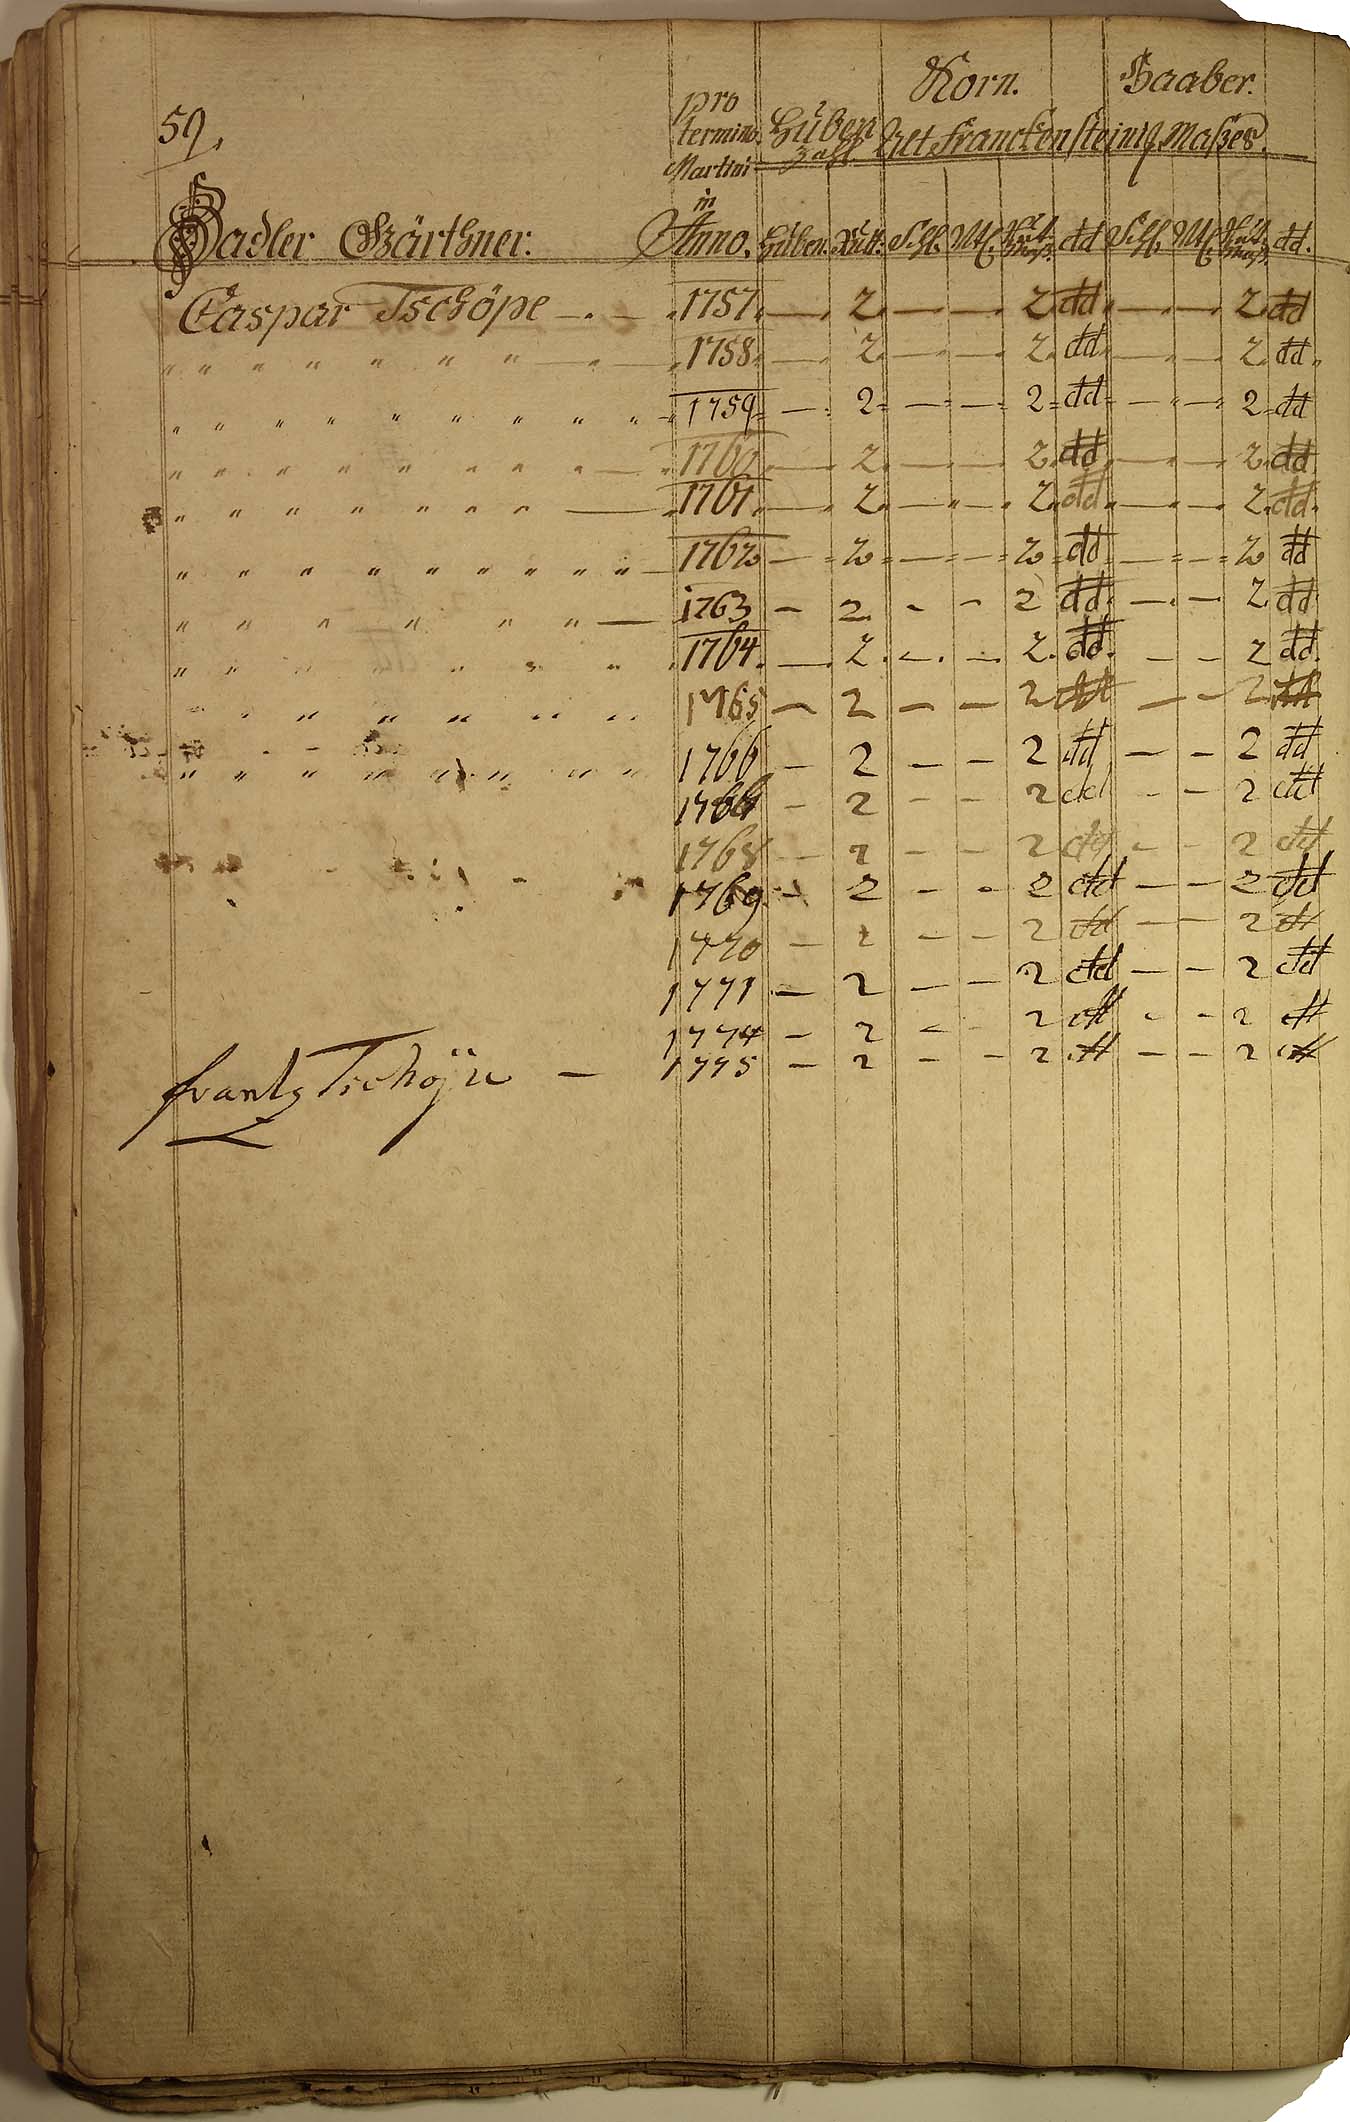 59.
Korn. Haaber.
pro termino Martini in Anno.
Huben Zahl. Alt Franckensteinig. Maßes.
Gärthner. Huben. Rutt. Schl. Mtz. dd Schl. Mtz. dd.
Caspar Tschöpe — . — 1757. — 2. — — 2. dd — — 2. dd
" " " " " " " — " — 1758. — 2. — — 2. dd. — — 2. dd.
" " " " " " " " " 1759 — 2 — — 2 dd — — 2 dd
" " " " " " " " — 1760. — 2. — — 2. dd — — 2. dd
" " " " " " " — 1761. — 2. — — 2. dd — — 2. dd.
" " " " " " " " " " — 1762 — 2 — — 2 dd — — 2 dd
" " " " " " — 1763 — 2. - - 2 dd — — 2. dd
" " " " " " " 1764. — 2. — — 2. dd. — — 2 dd.
" " " " " " " 1765 — 2 — — 2 dd — — 2 dd
" " " " " " " " 1766 — 2 — — 2 dd — — 2 dd
— 2 — — 2 dd - - 2 dd
1768 — 2 — — 2 dd - - 2 dd
1769 - 2 - - 2 dd — — 2 dd
1770 — 2 — — 2 dd — — 2 dd
1771 — 2 — — 2 dd — — 2 dd
1774 — 2 - - 2 dd - - 2 dd
frantz Tschöpe — 1775 — 2 — — 2 dd — — 2 dd